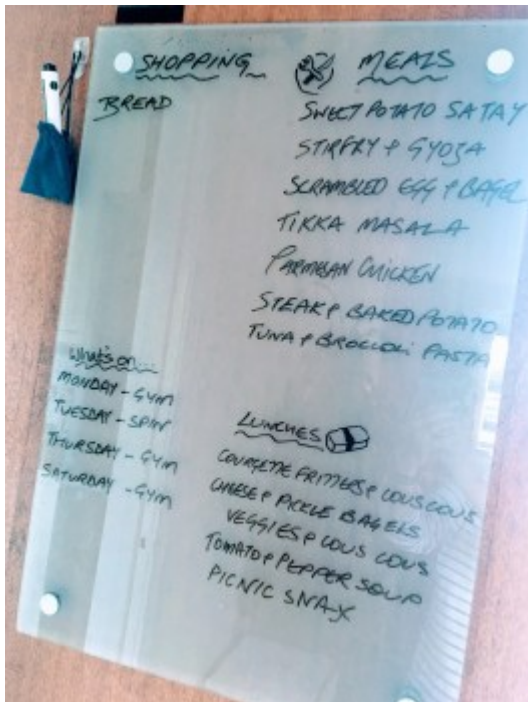 SHOPPING
BREAD
MEALS
SWEET POTATO SATAY
STIRFRY & GYOZA
SCRAMBLED EGG & BAGEL
TIKKA MASALA
PARMESAN CHICKEN
STEAK & BAKED POTATO
TUNA & BROCCOLI PASTA
What's on...
MONDAY - GYM
TUESDAY - SPIN
THURSDAY - GYM
SATURDAY - GYM
LUNCHES
COURGETTE FRITTERS & COUS COUS
CHEESE & PICKLE BAGELS
VEGGIES & COUS COUS
TOMATO & PEPPER SOUP
PICNIC SNAX